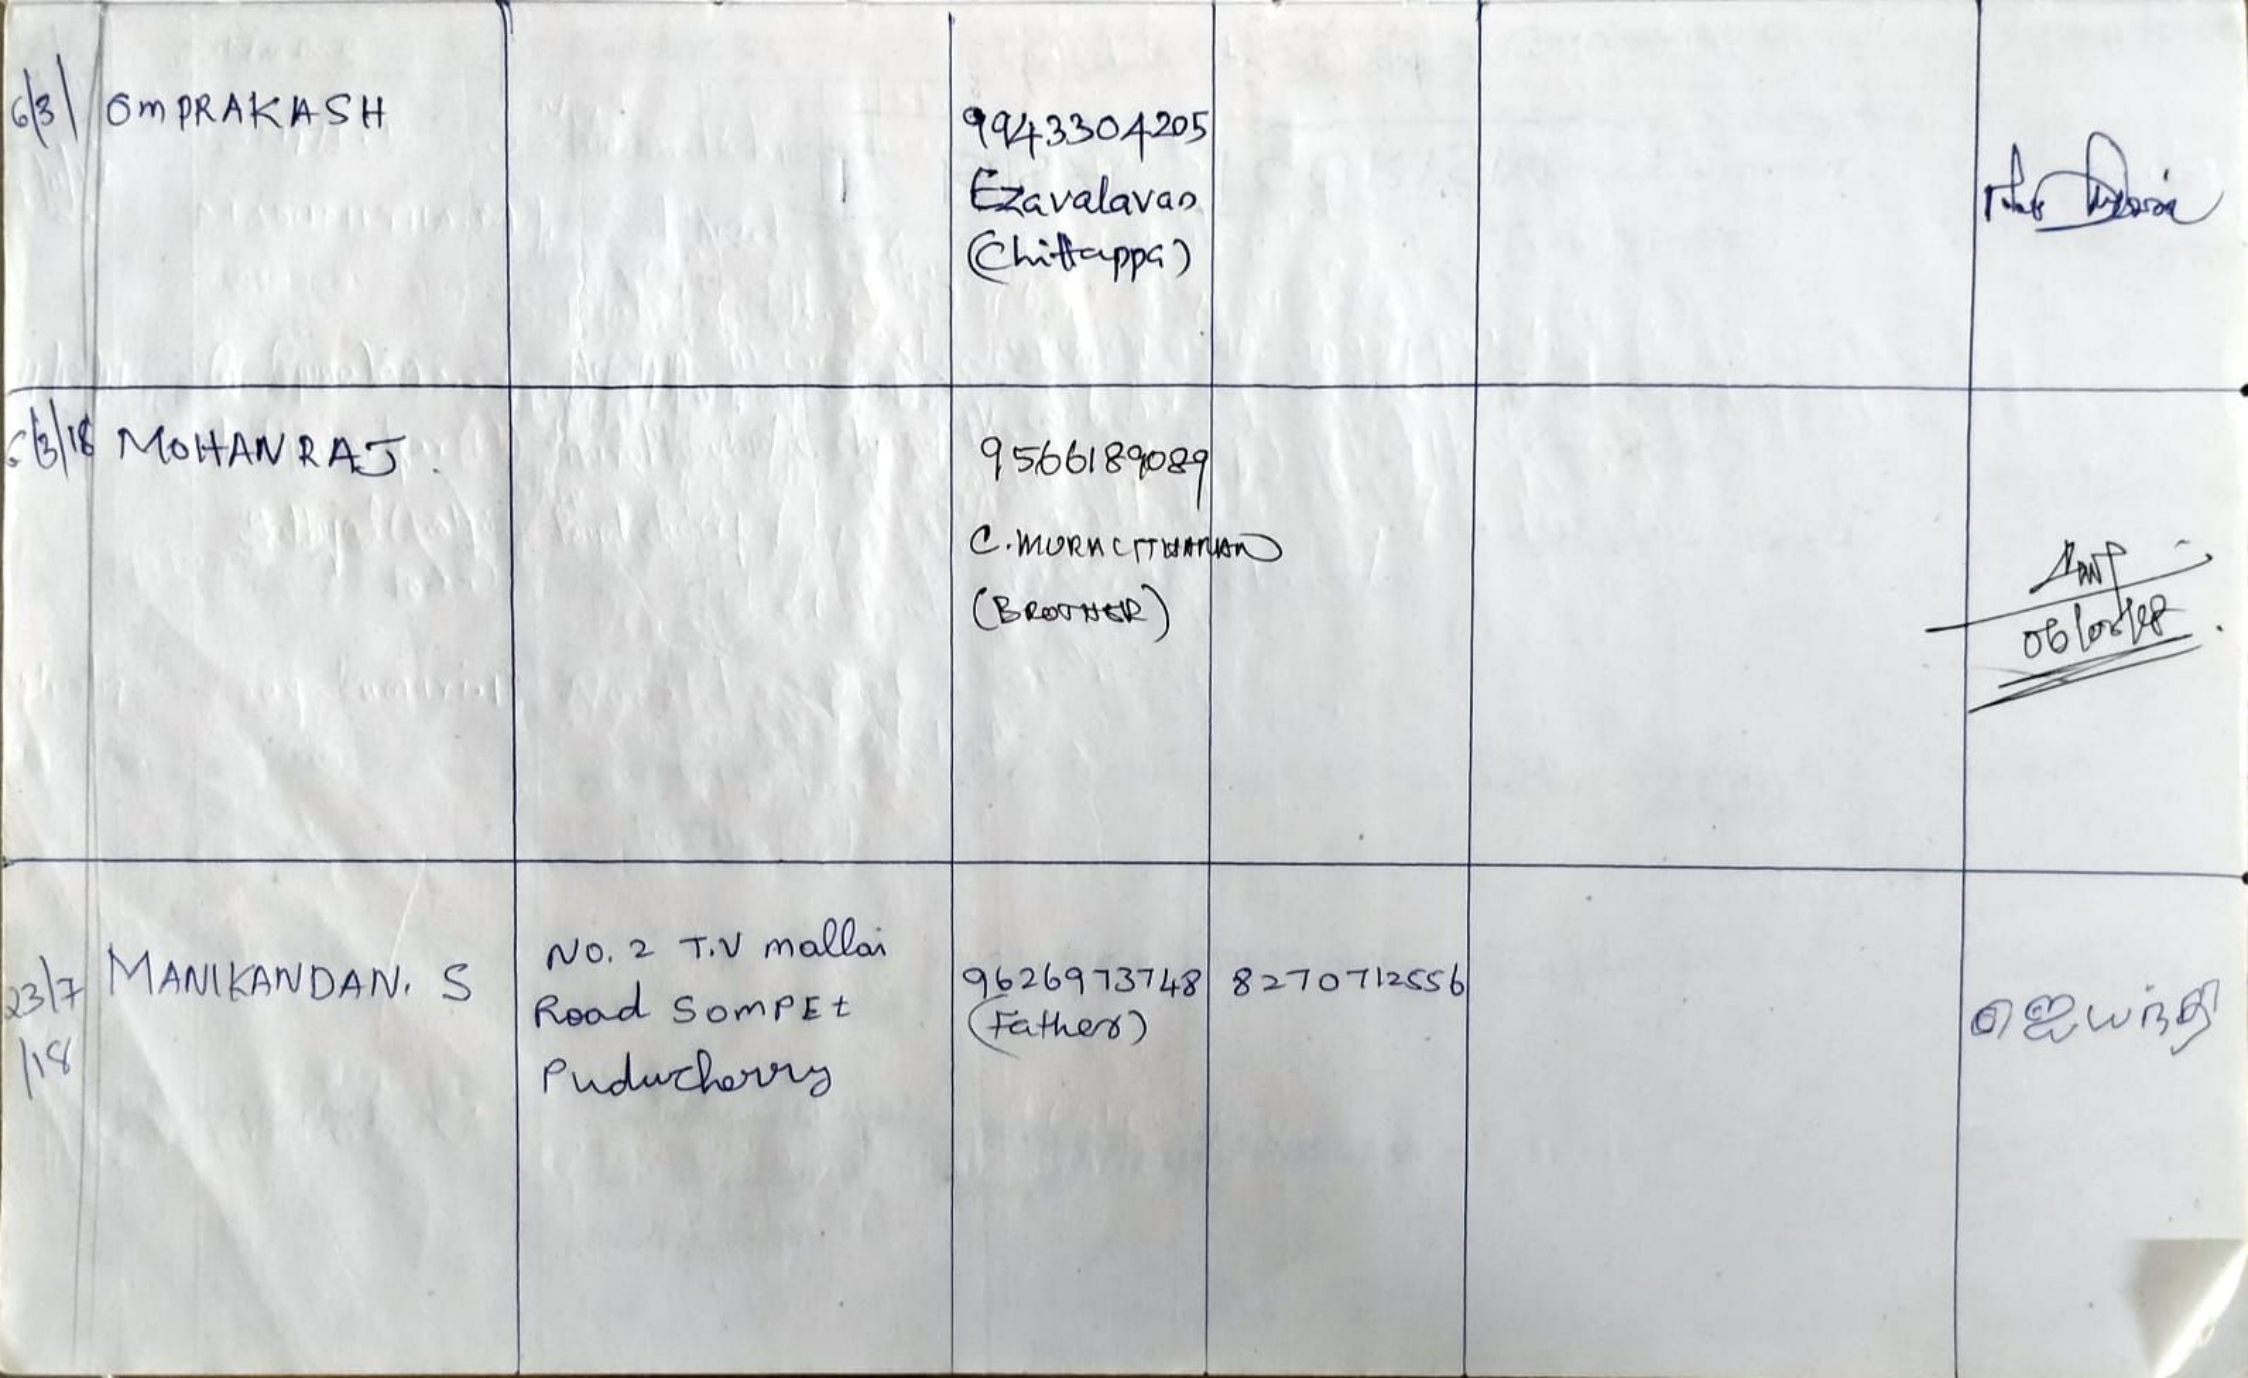 6/3/ OMPRAKASH
9943304205
Ezavalavan
(Chittappa)
6/3/18 MOHANRAJ.
9566189089
C.
(BROTHER)
06/03/18
23/7
/18
MANIKANDAN. S
NO. 2 T.V mallai
Road SOMPEt
Puducherry
9626973748
(Father)
8270712556
ஜெயந்தி